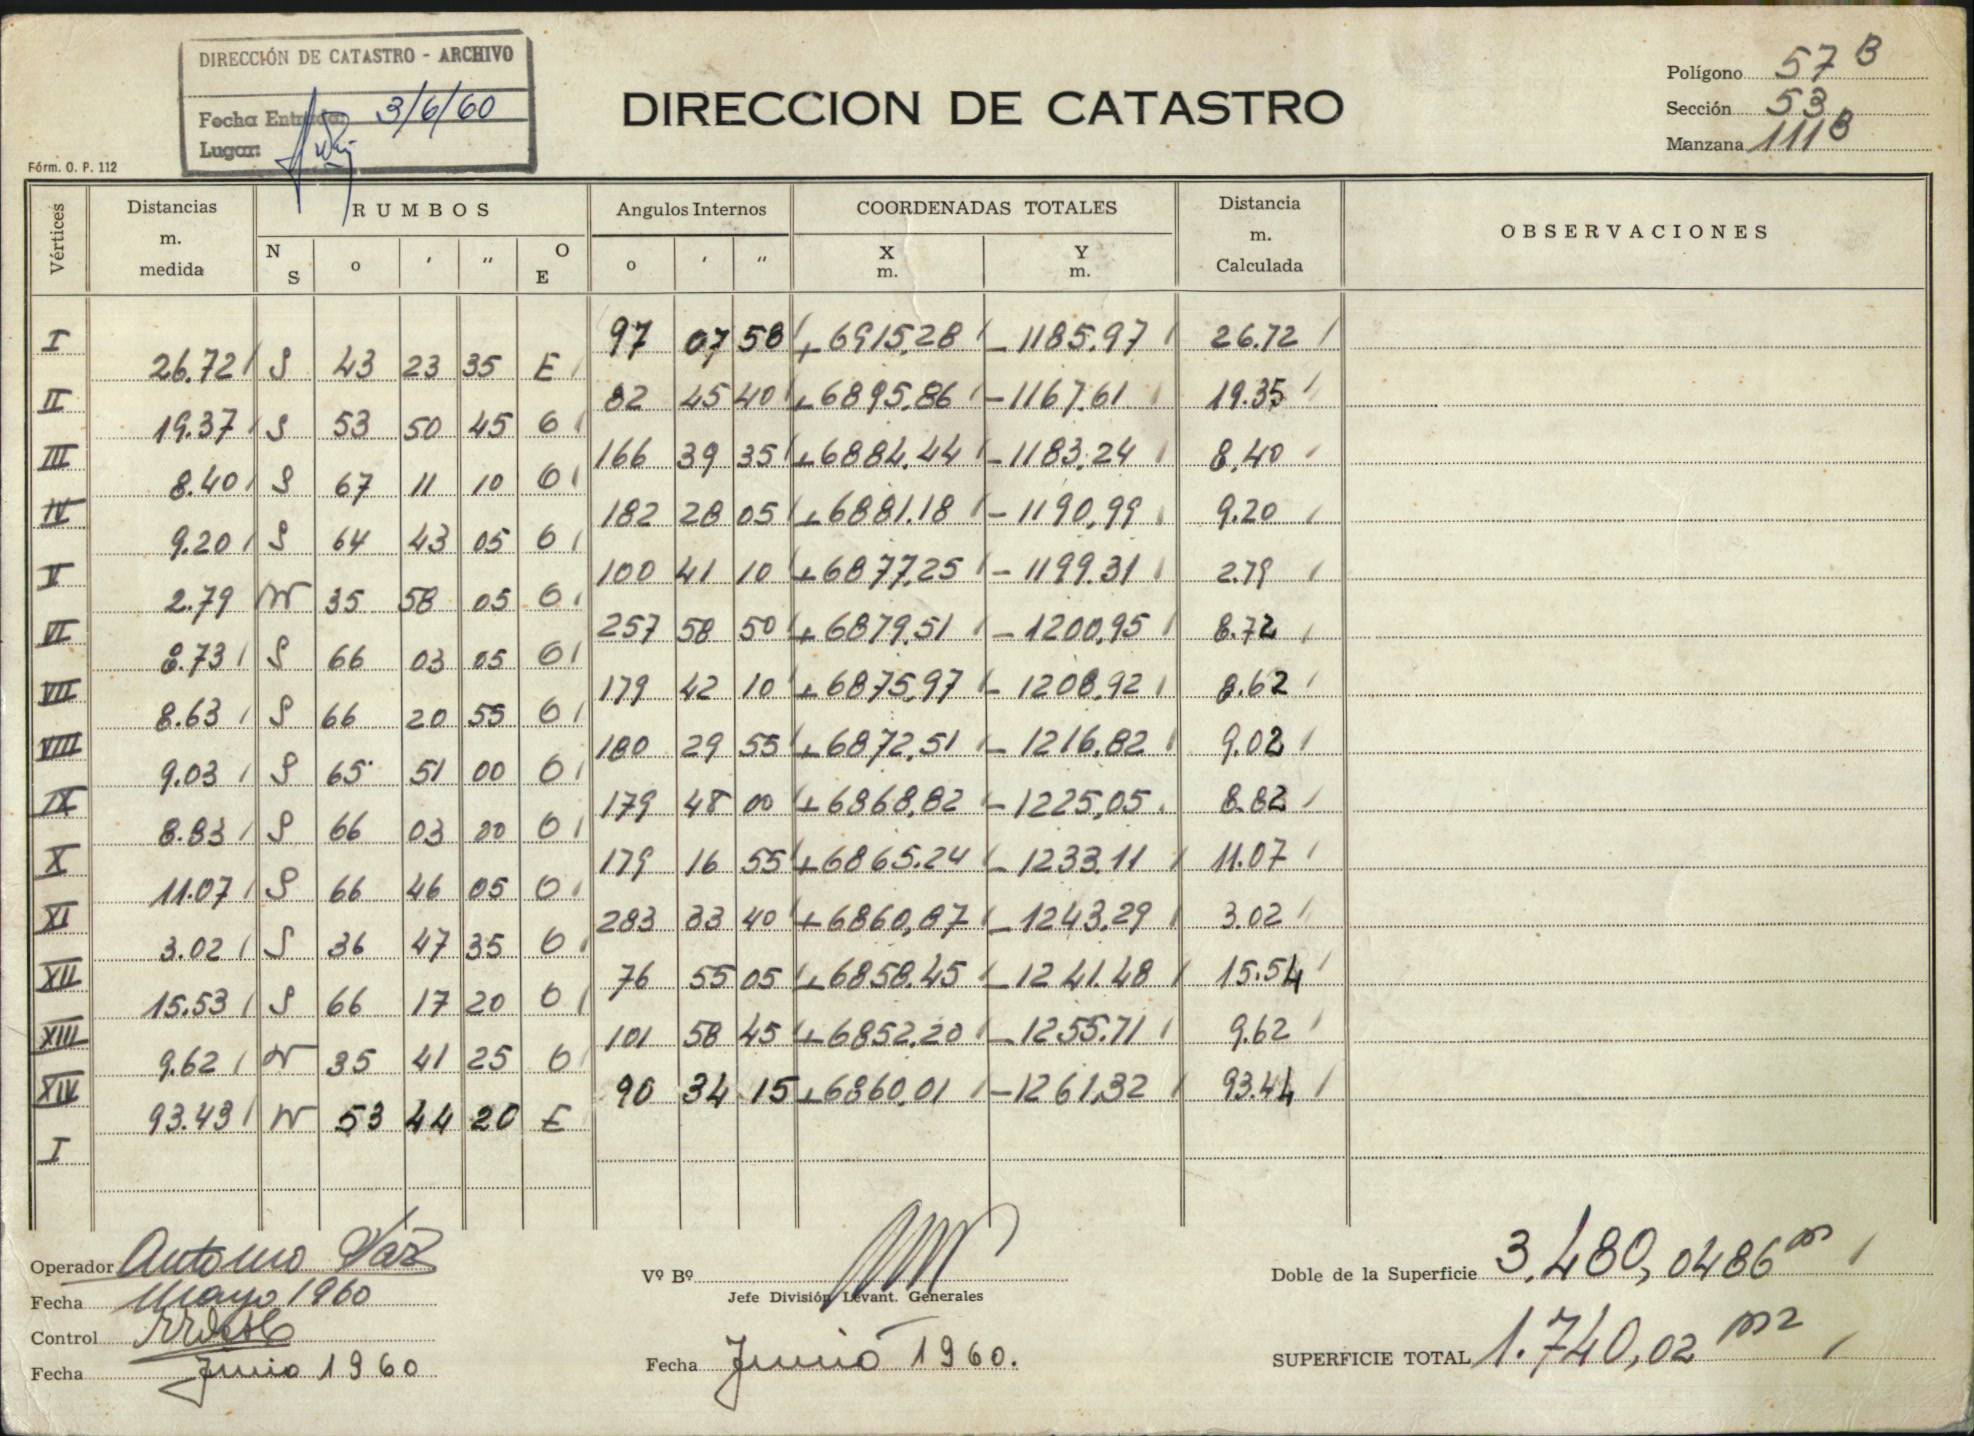 DIRECCIÓN DE CATASTRO - ARCHIVO
Fecha Entrada: 3/6/60
Lugar:
Fórm. O. P. 112
DIRECCION DE CATASTRO
Polígono 57 B
Sección 53
Manzana 111 B
Vértices Distancias m. medida RUMBOS Angulos Internos COORDENADAS TOTALES Distancia m. Calculada OBSERVACIONES
N S o ′ ″ O E o ′ ″ X m. Y m.
I 97 07 58 +6915,28 -1185.97 26.72
26.72 S 43 23 35 E
II 82 45 40 +6895,86 -1167.61 19.35
19.37 S 53 50 45 O
III 166 39 35 +6884.44 -1183.24 8.40
8.40 S 67 11 10 O
IV 182 28 05 +6881.18 -1190,99 9.20
9.20 S 64 43 05 O
V 100 41 10 +6877,25 -1199.31 2.79
2.79 N 35 58 05 O
VI 257 58 50 +6879.51 -1200,95 8.72
8.73 S 66 03 05 O
VII 179 42 10 +6875,97 -1208,92 8.62
8.63 S 66 20 55 O
VIII 180 29 55 +6872,51 -1216.82 9.02
9.03 S 65 51 00 O
IX 179 48 00 +6868,82 -1225,05 8.82
8.83 S 66 03 00 O
X 179 16 55 +6865.24 -1233.11 11.07
11.07 S 66 46 05 O
XI 283 33 40 +6860,87 -1243.29 3.02
3.02 S 36 47 35 O
XII 76 55 05 +6858.45 -1241.48 15.54
15.53 S 66 17 20 O
XIII 101 58 45 +6852.20 -1255.71 9.62
9.62 N 35 41 25 O
XIV 90 34 15 +6860,01 -1261,32 93.44
93.43 N 53 44 20 E
I
Operador Antonio Vaz
Fecha Mayo 1960
Control
Fecha Junio 1960
Vº Bº
Jefe División Levant. Generales
Fecha Junio 1960.
Doble de la Superficie 3.480,0486
SUPERFICIE TOTAL 1.740,02 m2